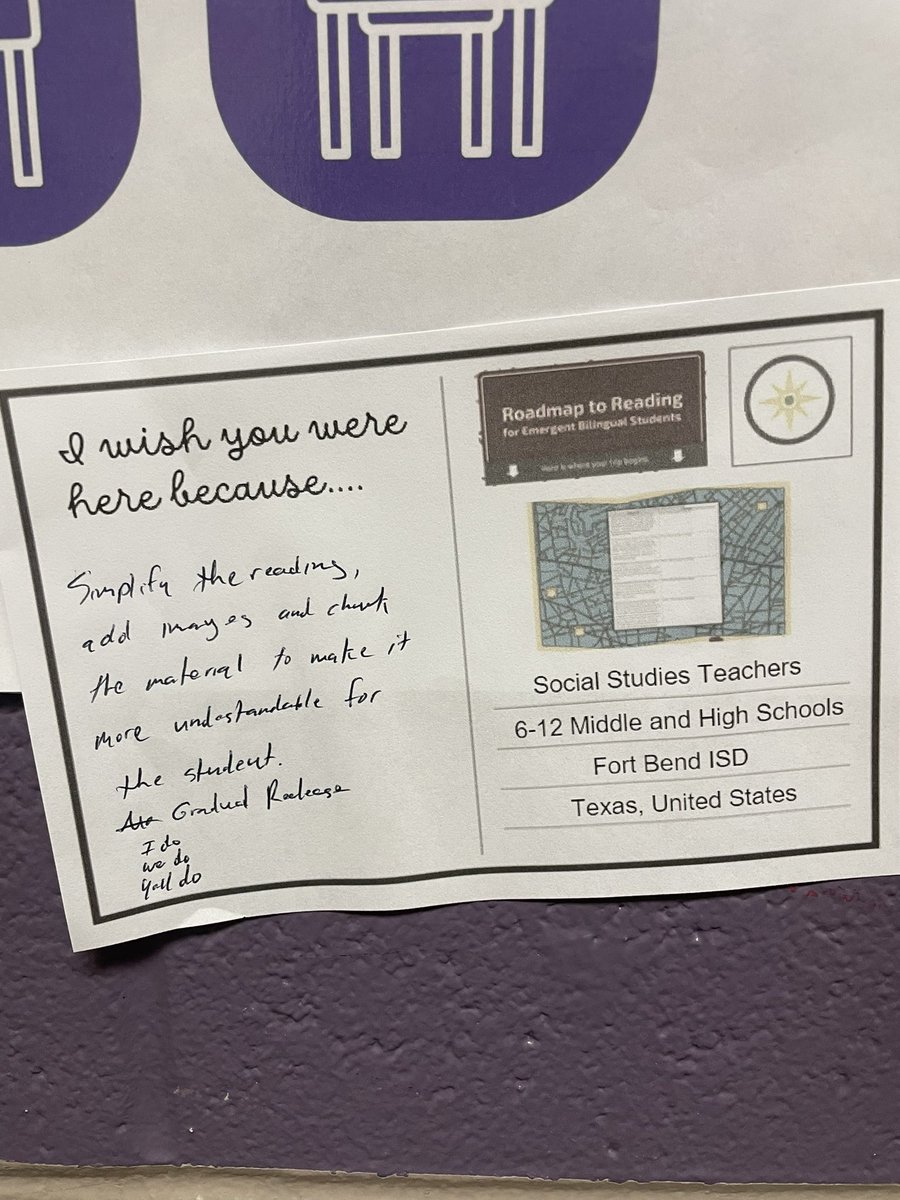 I wish you were
here because....
Simplify the reading,
add images and chunk
the material to make it
more undestandable for
the student.
Gradual Realease
I do
we do
Yall do
Roadmap to Reading
for Emergent Bilingual Students
Here is where your trip begins.
Social Studies Teachers
6-12 Middle and High Schools
Fort Bend ISD
Texas, United States